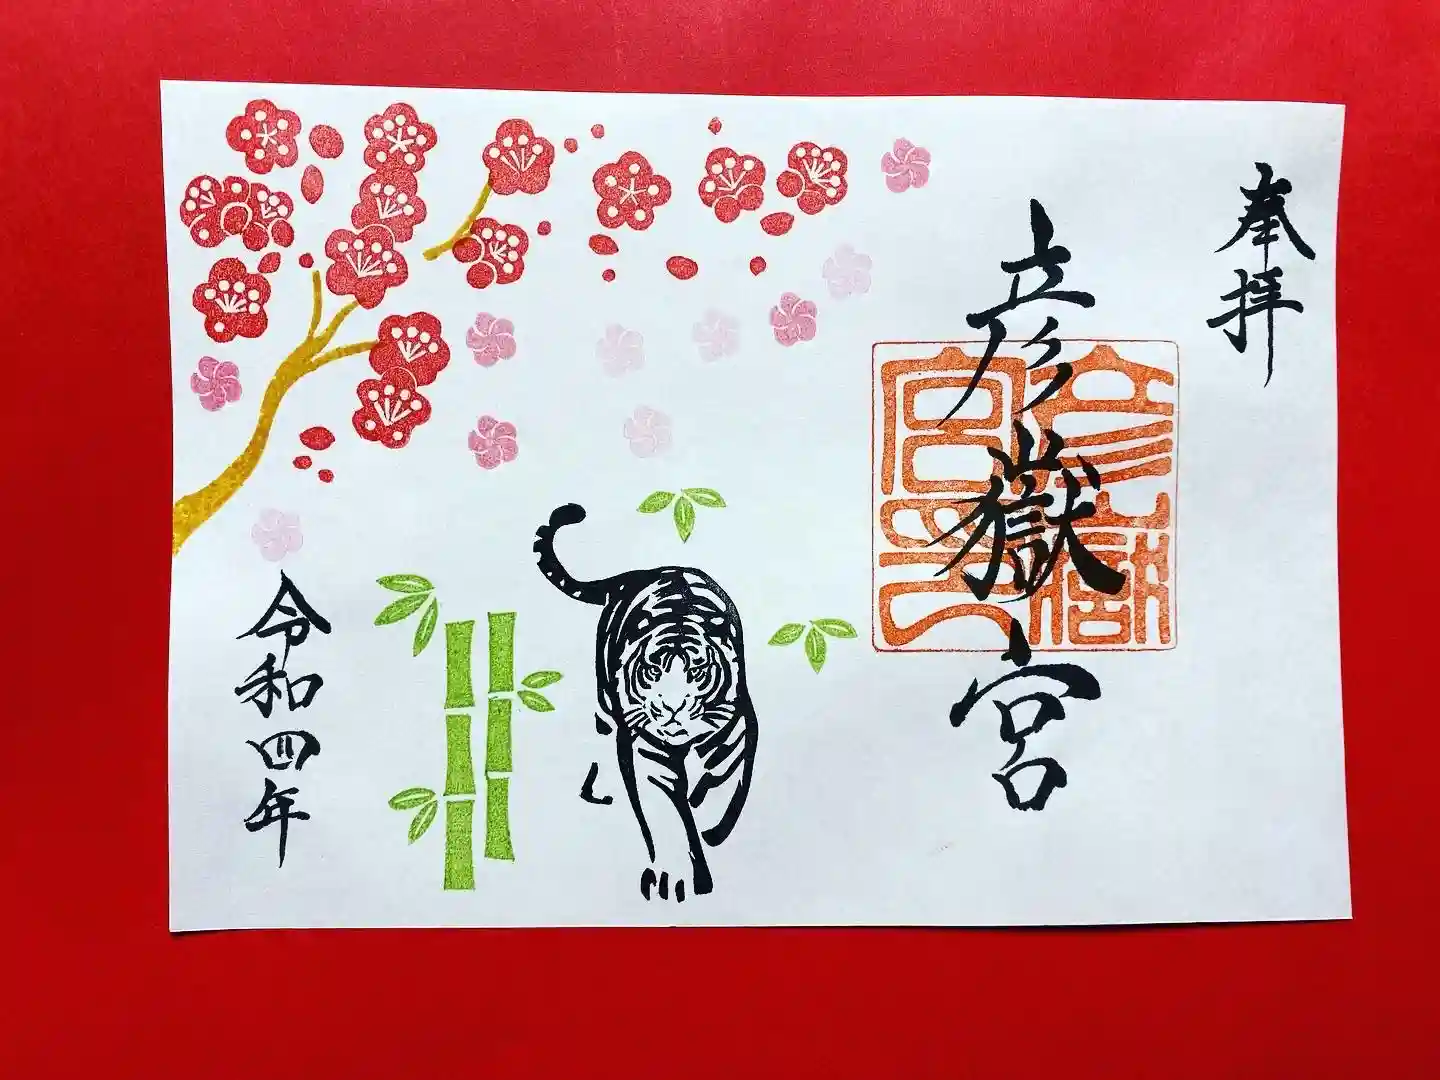 奉拝
彦嶽宮
彦嶽
宮印
令和四年